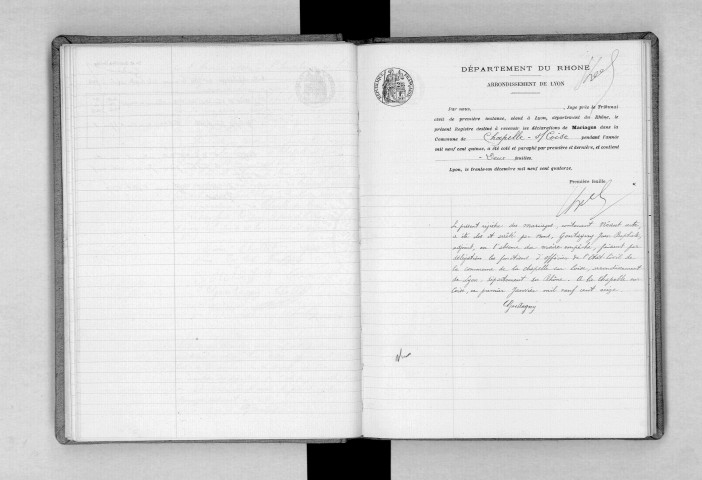 DÉPARTEMENT DU RHÔNE
ARRONDISSEMENT DE LYON
Par nous, , Juge près le Tribunal
civil de première instance, séant à Lyon, département du Rhône, le
présent Registre destiné à recevoir les déclarations de Mariages dans la
Commune de Chapelle-s/Coise pendant l'année
mil neuf cent quinze, a été coté et paraphé par première et dernière, et contient
Deux feuilles.
Lyon, le trente-un décembre mil neuf cent quatorze.
Première feuille,
Le présent registre des mariages, contenant
a été clos et arrêté par nous, Jean
adjoint, en l'absence du maire empêché, faisant par
délégation les fonctions d'officier de l'Etat-Civil de
la commune de la Chapelle sur Coise, arrondissement
de Lyon, département du Rhône. A la Chapelle sur
Coise, le premier Janvier mil neuf cent